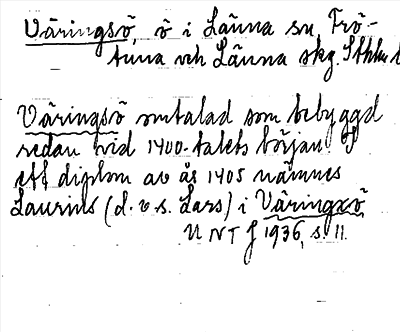 Väringsö, ö i Länna sn, Frö-
tuna och Länna skg. Sthlms l
Väringsö omtalad som bebyggd
redan vid 1400-talets början. I
ett diplom av år 1405 nämnes
Laurins (d.v.s. Lars) i Väringxö
UNTf 1936, s. 11.